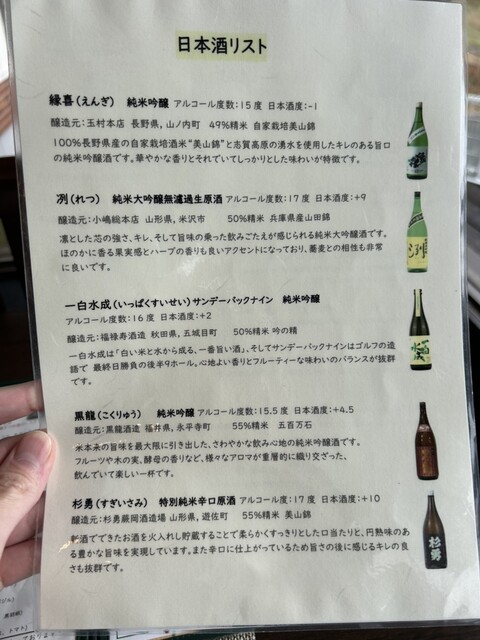 日本酒リスト
縁喜(えんぎ) 純米吟醸 アルコール度数:15度 日本酒度:-1
醸造元:玉村本店 長野県,山ノ内町 49%精米 自家栽培美山錦
100%長野県産の自家栽培酒米“美山錦”と志賀高原の湧水を使用したキレのある旨口
の純米吟醸酒です。華やかな香りとそれでいてしっかりとした味わいが特徴です。
冽(れつ) 純米大吟醸無濾過生原酒 アルコール度数:17度 日本酒度:+9
醸造元:小嶋総本店 山形県,米沢市 50%精米 兵庫県産山田錦
凛とした芯の強さ、キレ、そして旨味の乗った飲みごたえが感じられる純米大吟醸酒です。
ほのかに香る果実感とハーブの香りも良いアクセントになっており、蕎麦との相性も非常
に良いです。
一白水成(いっぱくすいせい)サンデーバックナイン 純米吟醸
アルコール度数:16度 日本酒度:+2
醸造元:福禄寿酒造 秋田県,五城目町 50%精米 吟の精
一白水成は「白い米と水から成る、一番旨い酒」、そしてサンデーバックナインはゴルフの造
語で 最終日勝負の後半9ホール。心地よい香りとフルーティーな味わいのバランスが抜群
です。
黒龍(こくりゅう) 純米吟醸 アルコール度数:15.5度 日本酒度:+4.5
醸造元:黒龍酒造 福井県,永平寺町 55%精米 五百万石
米本来の旨味を最大限に引き出した、さわやかな飲み心地の純米吟醸酒です。
フルーツや木の実、酵母の香りなど、様々なアロマが重層的に織り交ざった、
飲んでいて楽しい一杯です。
杉勇(すぎいさみ) 特別純米辛口原酒 アルコール度:17度 日本酒度:+10
醸造元:杉勇蕨岡酒造場 山形県,遊佐町 55%精米 美山錦
新酒でできたお酒を火入れし貯蔵することで柔らかくすっきりとした口当たりと、円熟味のあ
る豊かな旨味を実現しています。また辛口に仕上がっているため旨さの後に感じるキレの良
さも抜群です。
杉勇
トマト)